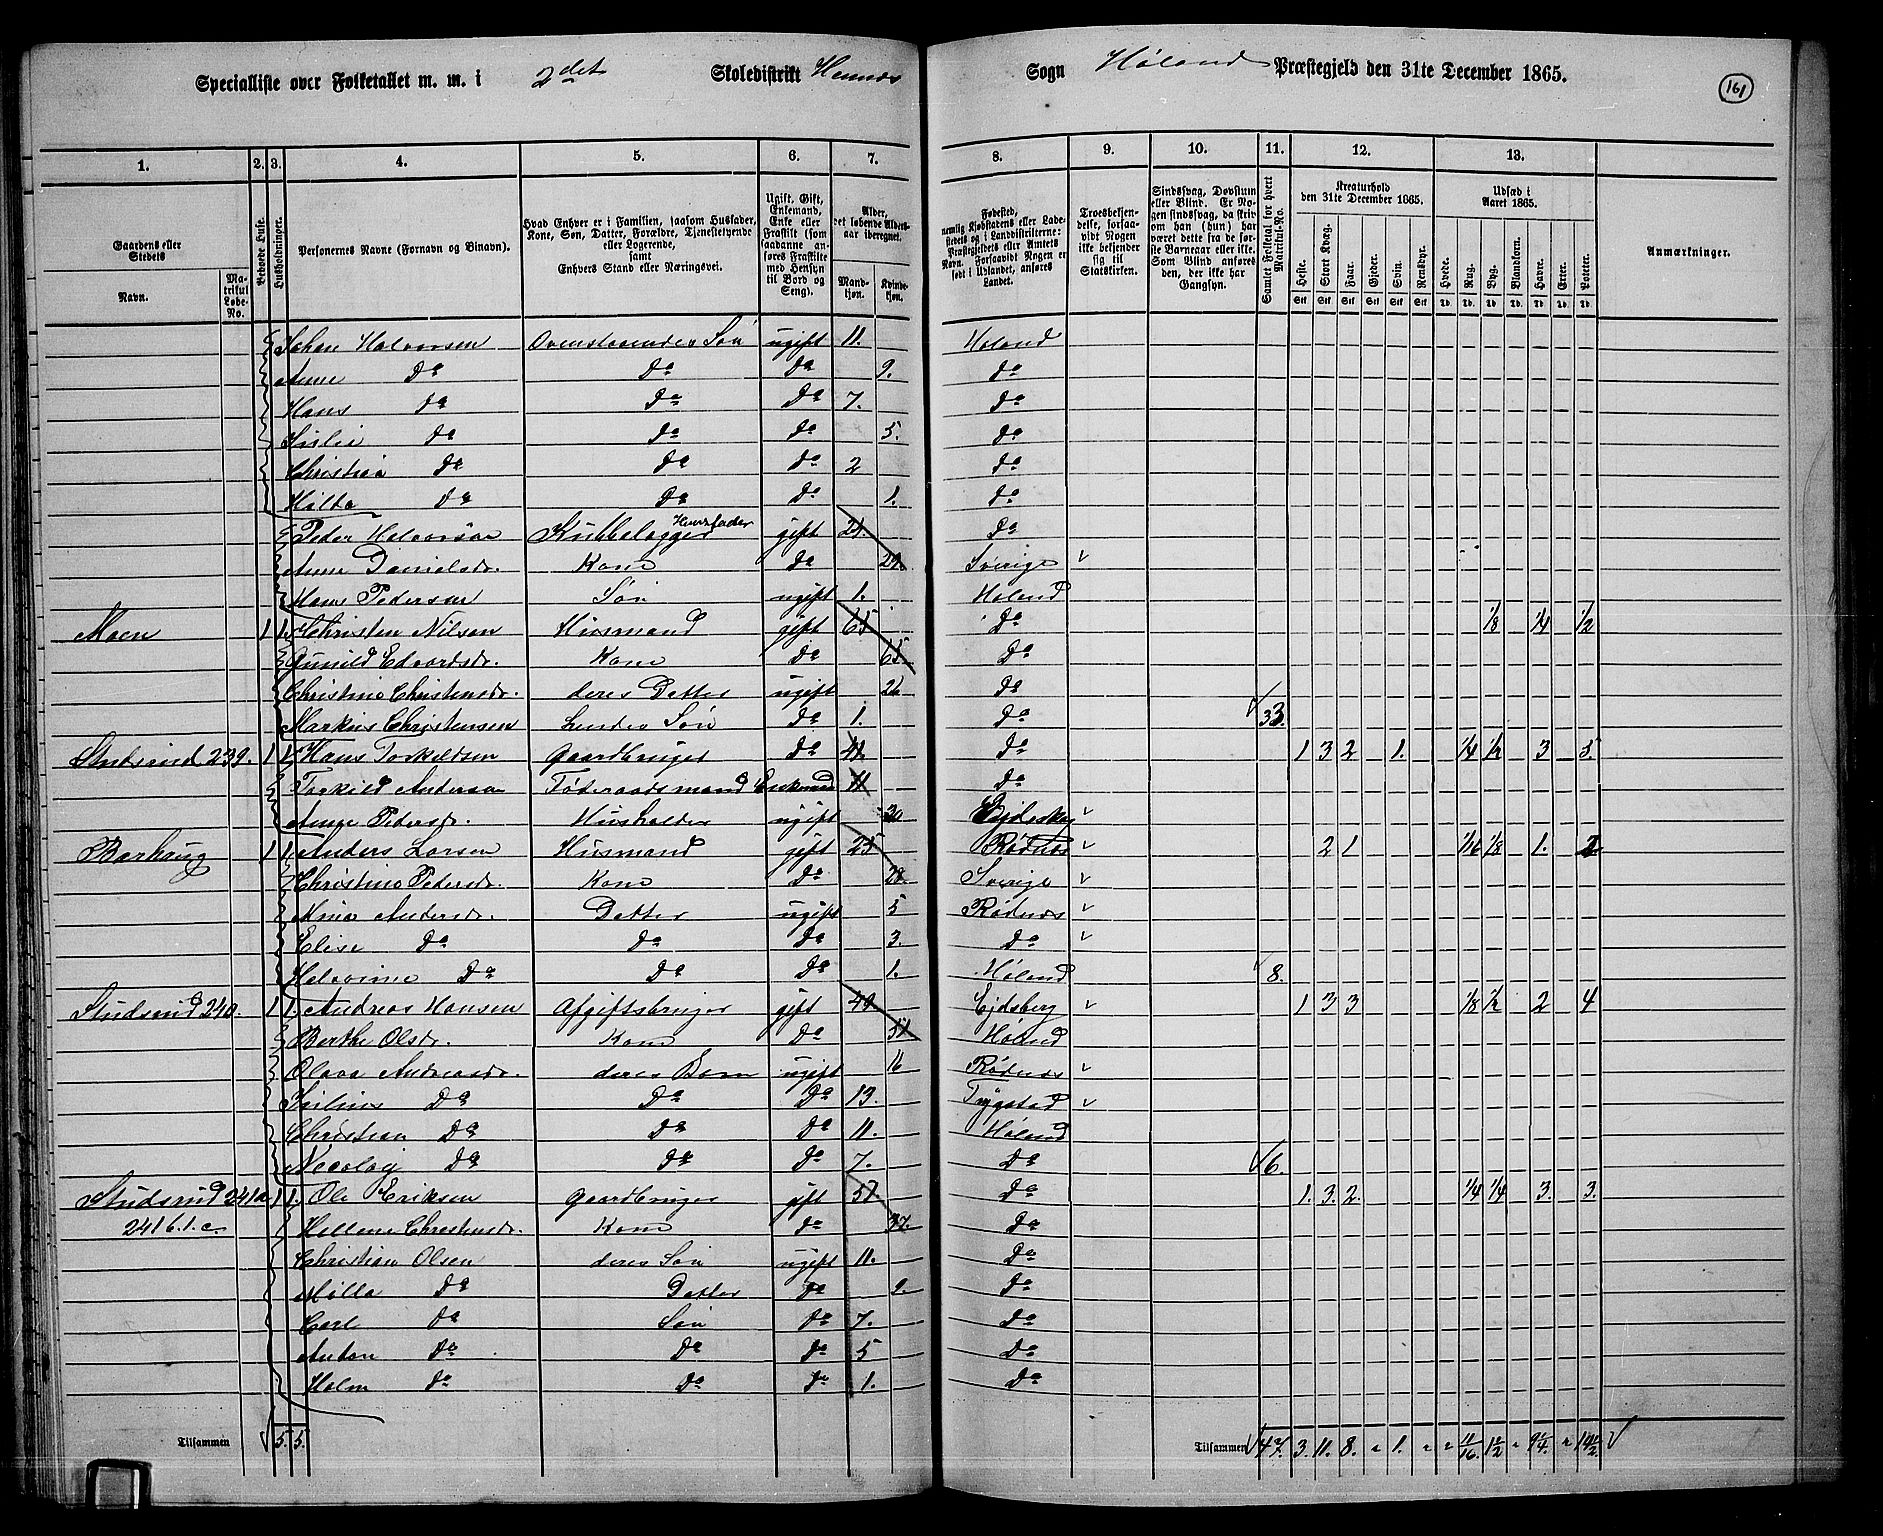 Specialliste over Folketallet m. m. i 2det Skoledistrikt Hemnæs Sogn Høland Præstegjeld den 31te December 1865.
161
1. 2. 3. 4. 5. 6. 7. 8. 9. 10. 11. 12. 13.
Gaardens eller Stedets
Navn. Matrikul Løbe-No.
Beboede Huse.
Husholdninger.
Personernes Navne (Fornavn og Binavn).
Hvad Enhver er i Familien, saasom Husfader, Kone, Søn, Datter, Forældre, Tjenestetyende eller Logerende, samt Enhvers Stand eller Næringsvei.
Ugift, Gift, Enkemand, Enke eller Fraskilt (som saadanne anføres Fraskilte med Hensyn til Bord og Seng).
Alder, det løbende Alders-aar iberegnet.
Mandkjøn. Kvindekjøn.
Fødested, nemlig Kjøbstadens eller Ladestedets og i Landdistrikterne: Præstegjeldets eller Amtets Navn. Forsaavidt Nogen er født i Udlandet, anføres Landet.
Troesbekjendelse, forsaavidt Nogen ikke bekjender sig til Statskirken.
Sindssvag, Døvstum eller Blind. Er Nogen sindssvag, da skriv om han (hun) har været dette fra de første Barneaar eller ikke. Som Blind anføres den, der ikke har Gangsyn.
Samlet Folketal for hvert Matrikul-No.
Kreaturhold den 31te December 1865.
Heste. Stort Kvæg. Faar. Gjeder. Svin. Rensdyr.
Udsæd i Aaret 1865.
Hvede. Rug. Byg. Blandkorn. Havre. Erter. Poteter.
Anmærkninger.
Johan Halvorsen Ovenstaaendes Søn ugift 11. Høland
Anne Do Do Do 9. Do
Hans Do Do Do 7. Do
Do Do Do 5. Do
Christian Do Do Do 2 Do
Hilda Do Do Do 1. Do
Peder Halvorsen Husfader gift Do
Anne Danielsdr. Kone Do Sverige
Hans Pedersen Søn ugift 1. Høland
Moen 1 1 Christen Nilsen Husmand gift 65 Do 1/8 1/4 1/2
Gunild Edvardsdr. Kone Do Do
Christine Christensdr. deres Datter ugift 26 Do
Markus Christensen Søn Do 1. Do 33.
Studsrud 239. 1 1 Hans Torkildsen Gaardbruger Do 41. Do 1 3 2 1. 1/4 1/2 3 5.
Torkild Andersen Føderaadsmand Enkemand Do
Anne Pedersdr. Husholder ugift 30
1 1 Anders Larsen Husmand gift 25 Rødnæs 2 1 1/16 1/8 1. 2
Christine Pedersdr. Kone Do 28. Sverige
Mina Andersdr. Datter ugift 5 Rødnæs
Elise Do Do Do 3. Do
Halvorine Do Do Do 1. Høland 8.
Studsrud 240. 1 1 Andreas Hansen Afgiftsbruger gift Eidsberg 1 3 3 1/8 1/2 2 4
Berthe Olsdr. Kone Do 51 Høland
Olava Andreasdr. deres Barn ugift 16 Rødnæs
Do Do Do 13. Trygstad
Christian Do Do Do 11. Høland
Nicolay Do Do Do 7. Do 6.
Studsrud 241a 1 1. Ole Eriksen Gaardbruger gift 57 Do 1. 3. 2. 1/4 1/4 3. 3.
241b.1.c. Hellene Christensdr. Kone Do 37. Do
Christian Olsen deres Søn ugift 11. Do
Milla Do Datter Do 9. Do
Carl Do Søn Do 7. Do
Anton Do Do Do 5 Do
Holm Do Do Do 1. Do
Tilsammen 5. 5.
Tilsammen 47. 3. 11. 8. 1. 11/16 1 1/2 9 1/4. 14 1/2